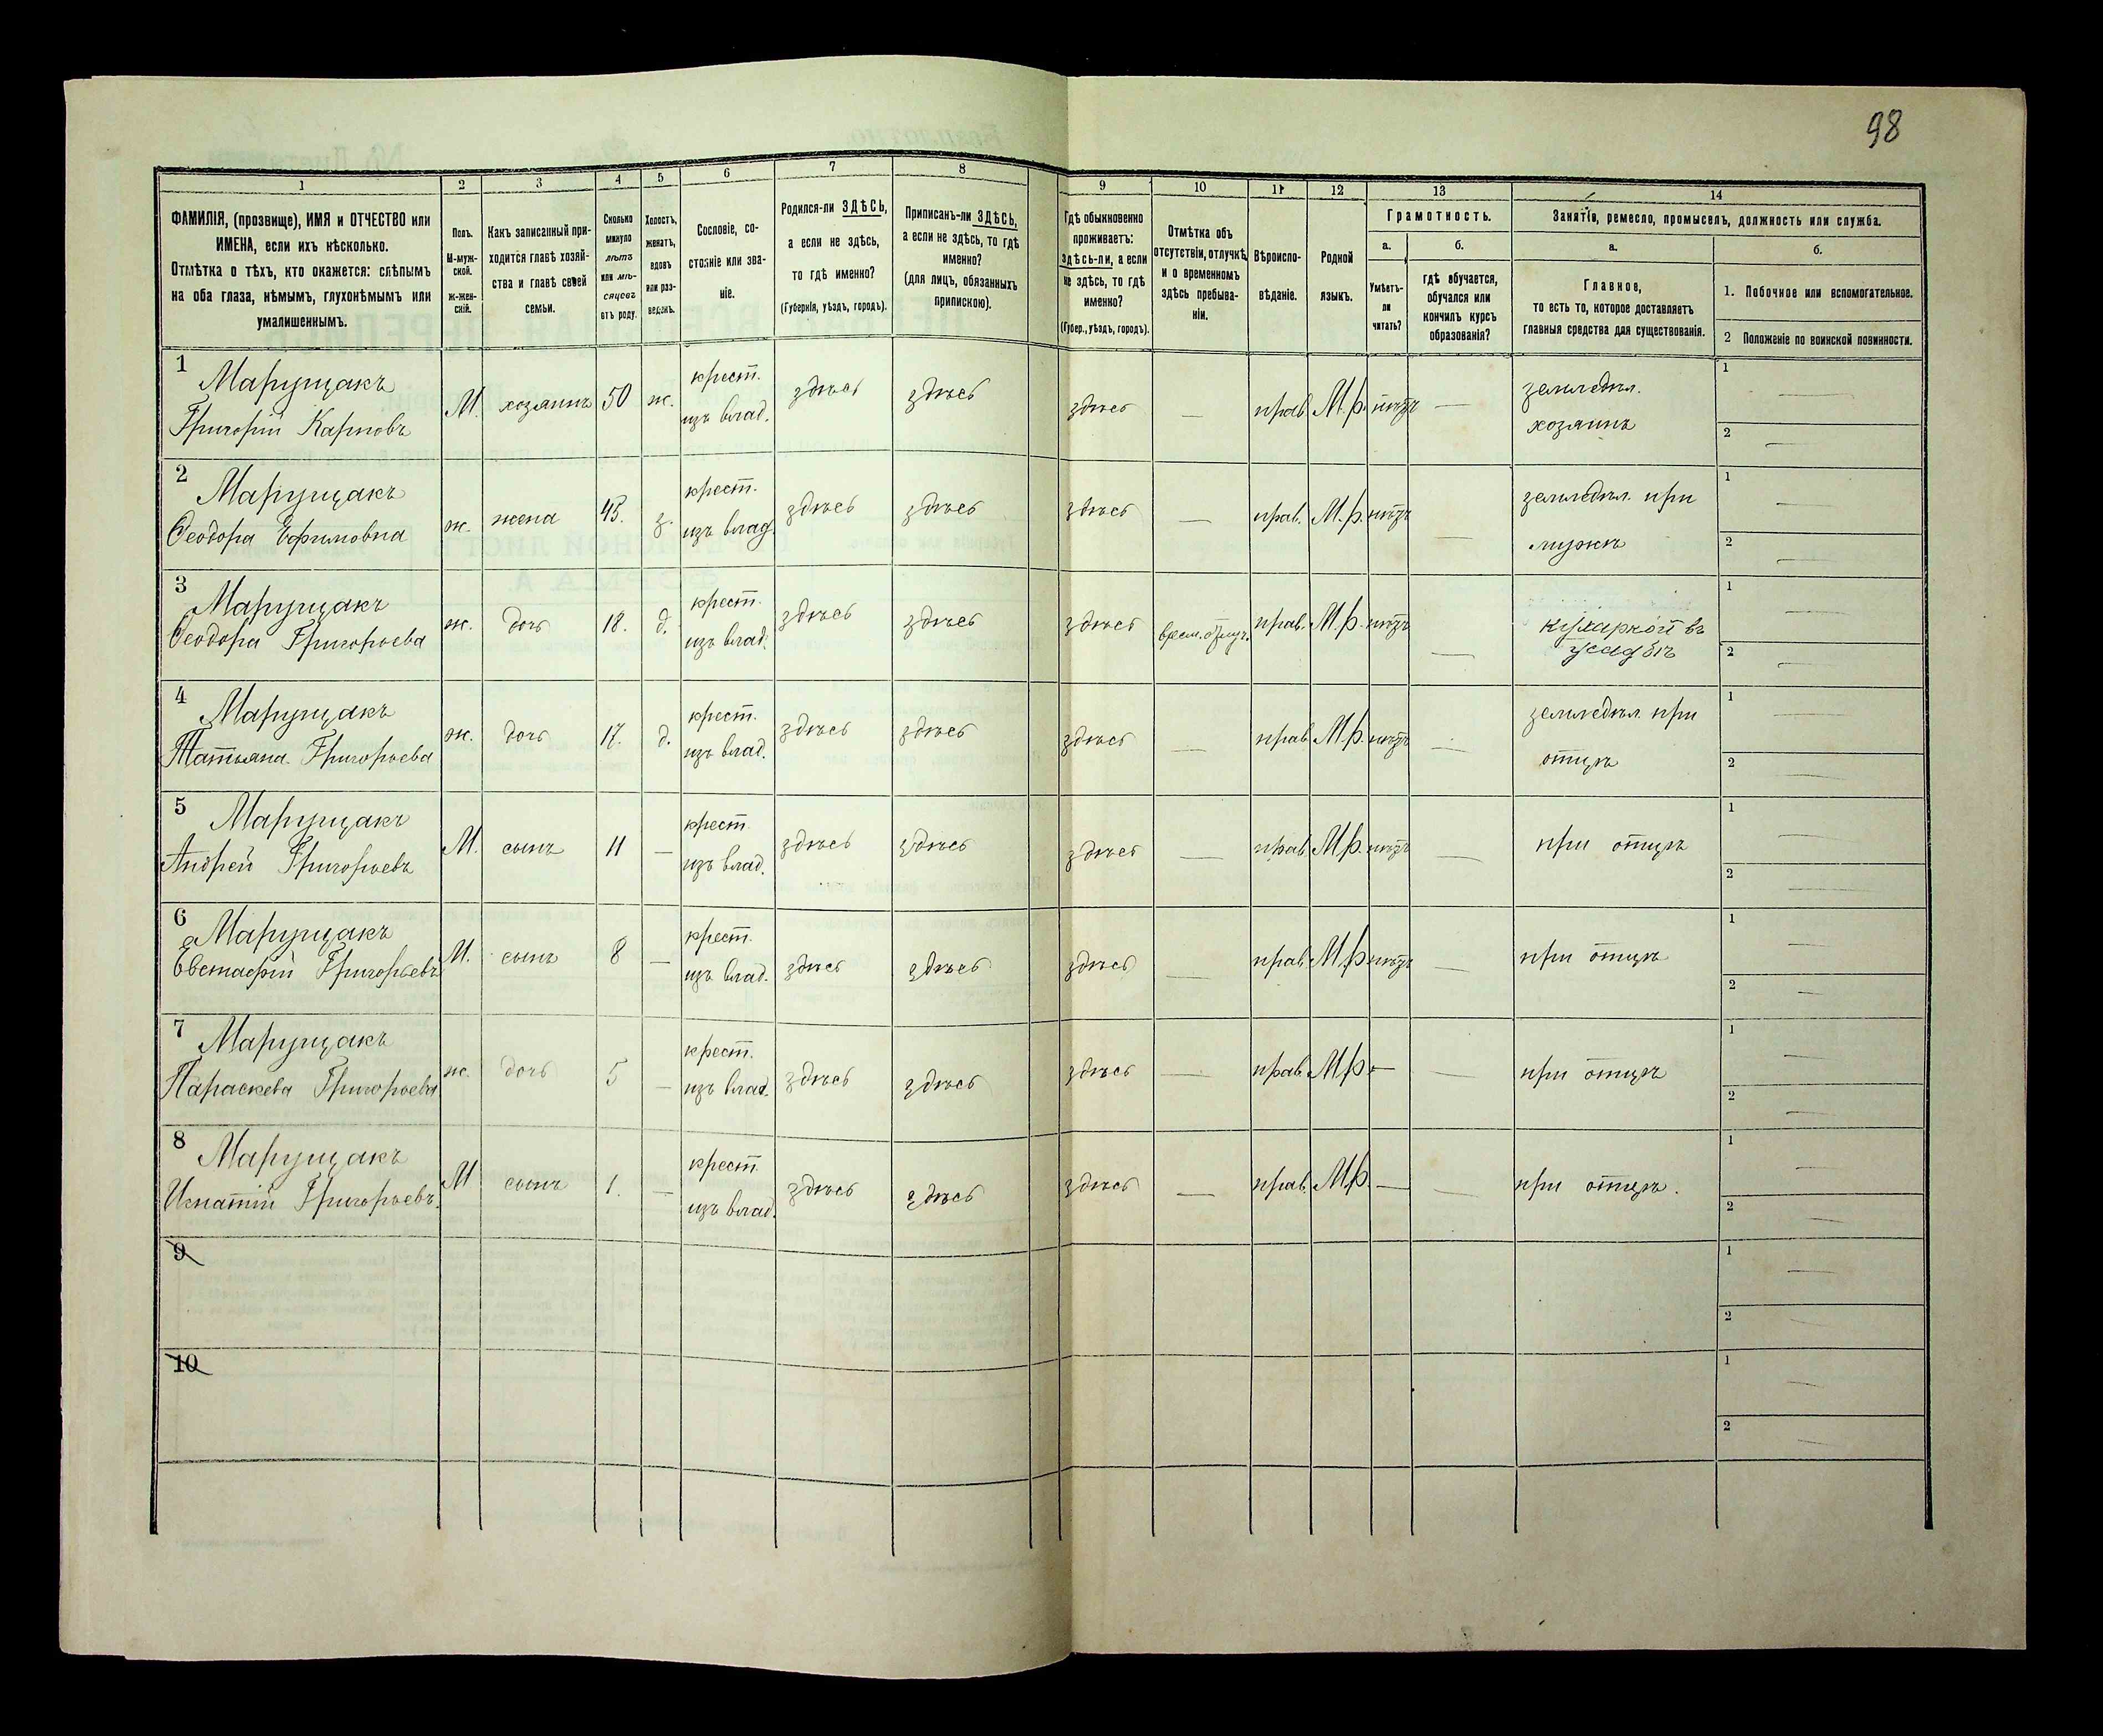 98
1
2
3
4
5
6
7
8
9
10
11
12
13
14
ФАМИЛІЯ, (прозвище), ИМЯ и ОТЧЕСТВО или
ИМЕНА, если ихъ нѣсколько.
Отмѣтка о тѣхъ, кто окажется: слѣпымъ
на оба глаза, нѣмымъ, глухонѣмымъ или
умалишеннымъ.
Полъ.
М-муж-
ской.
Ж-жен-
скій.
Какъ записанный при-
ходится главѣ хозяй-
ства и главѣ своей
семьи.
Сколько
минуло
лѣтъ
или мѣ-
сяцевъ
отъ роду.
Холостъ,
женатъ,
вдовъ
или раз-
веденъ.
Сословіе, со-
стояніе или зва-
ніе.
Родился-ли ЗДѢСЬ,
а если не здѣсь,
то гдѣ именно?
(Губернія, уѣздъ, городъ).
Приписанъ-ли ЗДѢСЬ,
а если не здѣсь, то гдѣ
именно?
(для лицъ, обязанныхъ
припискою).
Гдѣ обыкновенно
проживаетъ:
здѣсь-ли, а если
не здѣсь, то гдѣ
именно?
(Губер., уѣздъ, городъ).
Отмѣтка объ
отсутствіи, отлучкѣ
и о временномъ
здѣсь пребыва-
ніи.
Вѣроиспо-
вѣданіе.
Родной
языкъ.
Грамотность.
а.
Умѣетъ-
ли
читать?
б.
гдѣ обучается,
обучался или
кончилъ курсъ
образованія?
Занятіе, ремесло, промыселъ, должность или служба.
а.
Главное,
то есть то, которое доставляетъ
главныя средства для существованія.
б.
1. Побочное или вспомогательное.
2 Положеніе по воинской повинности.
1
Марущакъ
Григорій Карповъ
М. хозяинъ 50 ж.
крест.
изъ влад.
здѣсь здѣсь здѣсь — прав. М.р. нѣтъ —
земледѣл.
хозяинъ
1 —
2 —
2
Марущакъ
Ѳеодора Ефимовна
ж. жена 45. з.
крест.
изъ влад.
здѣсь здѣсь здѣсь — прав. М.р. нѣтъ —
земледѣл. при
мужѣ
1 —
2 —
3
Марущакъ
Ѳеодора Григорьева
ж. дочь 18. д.
крест.
изъ влад.
здѣсь здѣсь здѣсь врем. отлуч. прав. М.р. нѣтъ —
кухаркой въ
усадьбѣ
1 —
2 —
4
Марущакъ
Татьяна Григорьева
ж. дочь 17. д.
крест.
изъ влад.
здѣсь здѣсь здѣсь — прав. М.р. нѣтъ —
земледѣл. при
отцѣ
1 —
2 —
5
Марущакъ
Андрей Григорьевъ
М. сынъ 11 —
крест.
изъ влад.
здѣсь здѣсь здѣсь — прав. М.р. нѣтъ —
при отцѣ
1 —
2 —
6
Марущакъ
Евстафій Григорьевъ
М. сынъ 8 —
крест.
изъ влад.
здѣсь здѣсь здѣсь — прав. М.р. нѣтъ —
при отцѣ
1 —
2 —
7
Марущакъ
Параскева Григорьева
ж. дочь 5 —
крест.
изъ влад.
здѣсь здѣсь здѣсь — прав. М.р. — —
при отцѣ
1 —
2 —
8
Марущакъ
Игнатій Григорьевъ.
М сынъ 1. —
крест.
изъ влад.
здѣсь здѣсь здѣсь — прав. М.р. — —
при отцѣ.
1 —
2 —
9
1 —
2 —
10
1 —
2 —